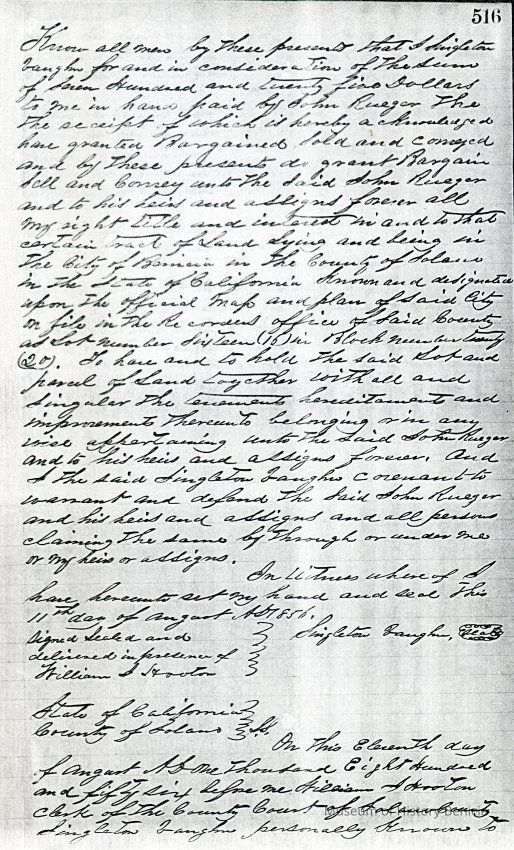 516
Know all men by these presents that I Singleton
Vaughn for and in consideration of the sum
of Seven Hundred and twenty five Dollars
to me in hand paid by John Rueger The
the receipt of which is hereby acknowledged
have granted Bargained Sold and conveyed
and by These presents do grant Bargain
Sell and Convey unto the Said John Rueger
and to his heirs and assigns forever all
my right title and interest in and to that
certain tract of Land Lying and being in
The City of Benicia in the County of Solano
in the State of California Known and designated
upon the official map and plan of Said City
on file in the Recorders office of Said County
as Lot number Sixteen (16) in Block number twenty
(20). To have and to hold the said Lot and
parcel of Land together with all and
Singular the tenements hereditaments and
improvements thereunto belonging or in any
wise appertaining unto the Said John Rueger
and to his heirs and assigns forever. And
I the said Singleton Vaughn covenant to
warrant and defend the Said John Rueger
and his heirs and assigns and all persons
claiming the same by through or under me
or my heirs or assigns.
In Witness where of I
have hereunto set my hand and seal This
11th day of August AD 1856.
Signed Sealed and Singleton Vaughn, Seal
delivered in presence of
William S Hooton
State of California
County of Solano SS.
On This Eleventh day
of August AD One Thousand Eight Hundred
and fifty six before me William S Hooton
Clerk of the County Court of Solano County
Singleton Vaughn personally Known to
Museum of History Benicia